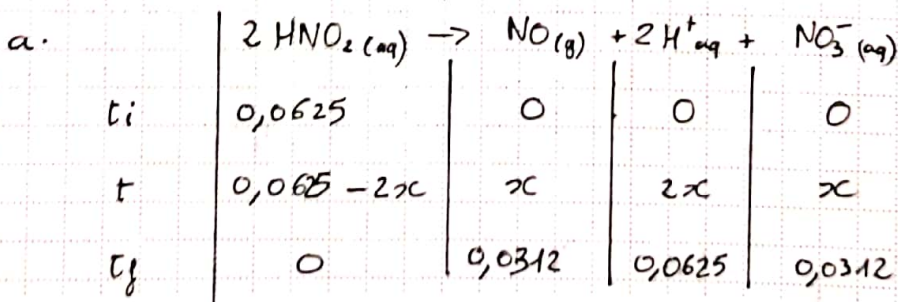 a. 2 HNO₂ (aq) → NO (g) + 2 H⁺ aq + NO₃⁻ (aq)
ti 0,0625 0 0 0
t 0,0625 - 2x x 2x x
tf 0 0,0312 0,0625 0,0312